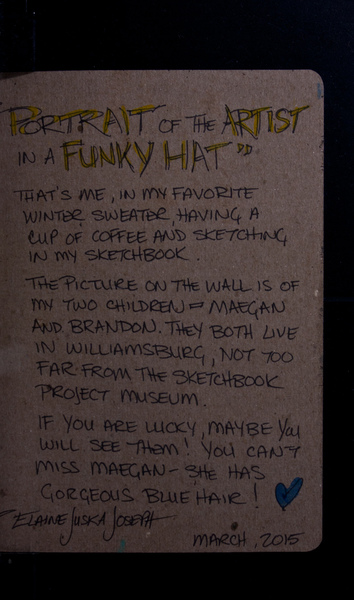 "PORTRAIT OF THE ARTIST
IN A FUNKY HAT"
THAT'S ME, IN MY FAVORITE
WINTER SWEATER, HAVING A
CUP OF COFFEE AND SKETCHING
IN MY SKETCHBOOK.
THE PICTURE ON THE WALL IS OF
MY TWO CHILDREN - MAEGAN
AND BRANDON. THEY BOTH LIVE
IN WILLIAMSBURG, NOT TOO
FAR FROM THE SKETCHBOOK
PROJECT MUSEUM.
IF YOU ARE LUCKY, MAYBE YOU
WILL SEE THEM! YOU CAN'T
MISS MAEGAN - SHE HAS
GORGEOUS BLUE HAIR!
ELAINE JUSKA JOSEPH
MARCH, 2015